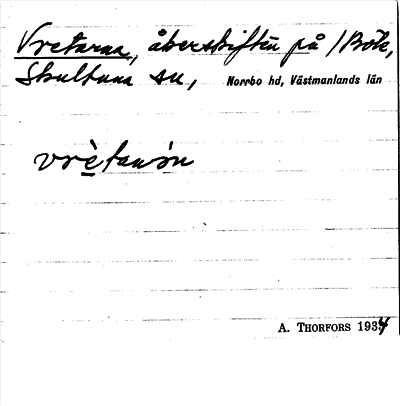 Vretarna, åberskiften på /Bök,
Skultuna sn, Norrbo hd, Västmanlands län
vrètanỏn
A. THORFORS 1934